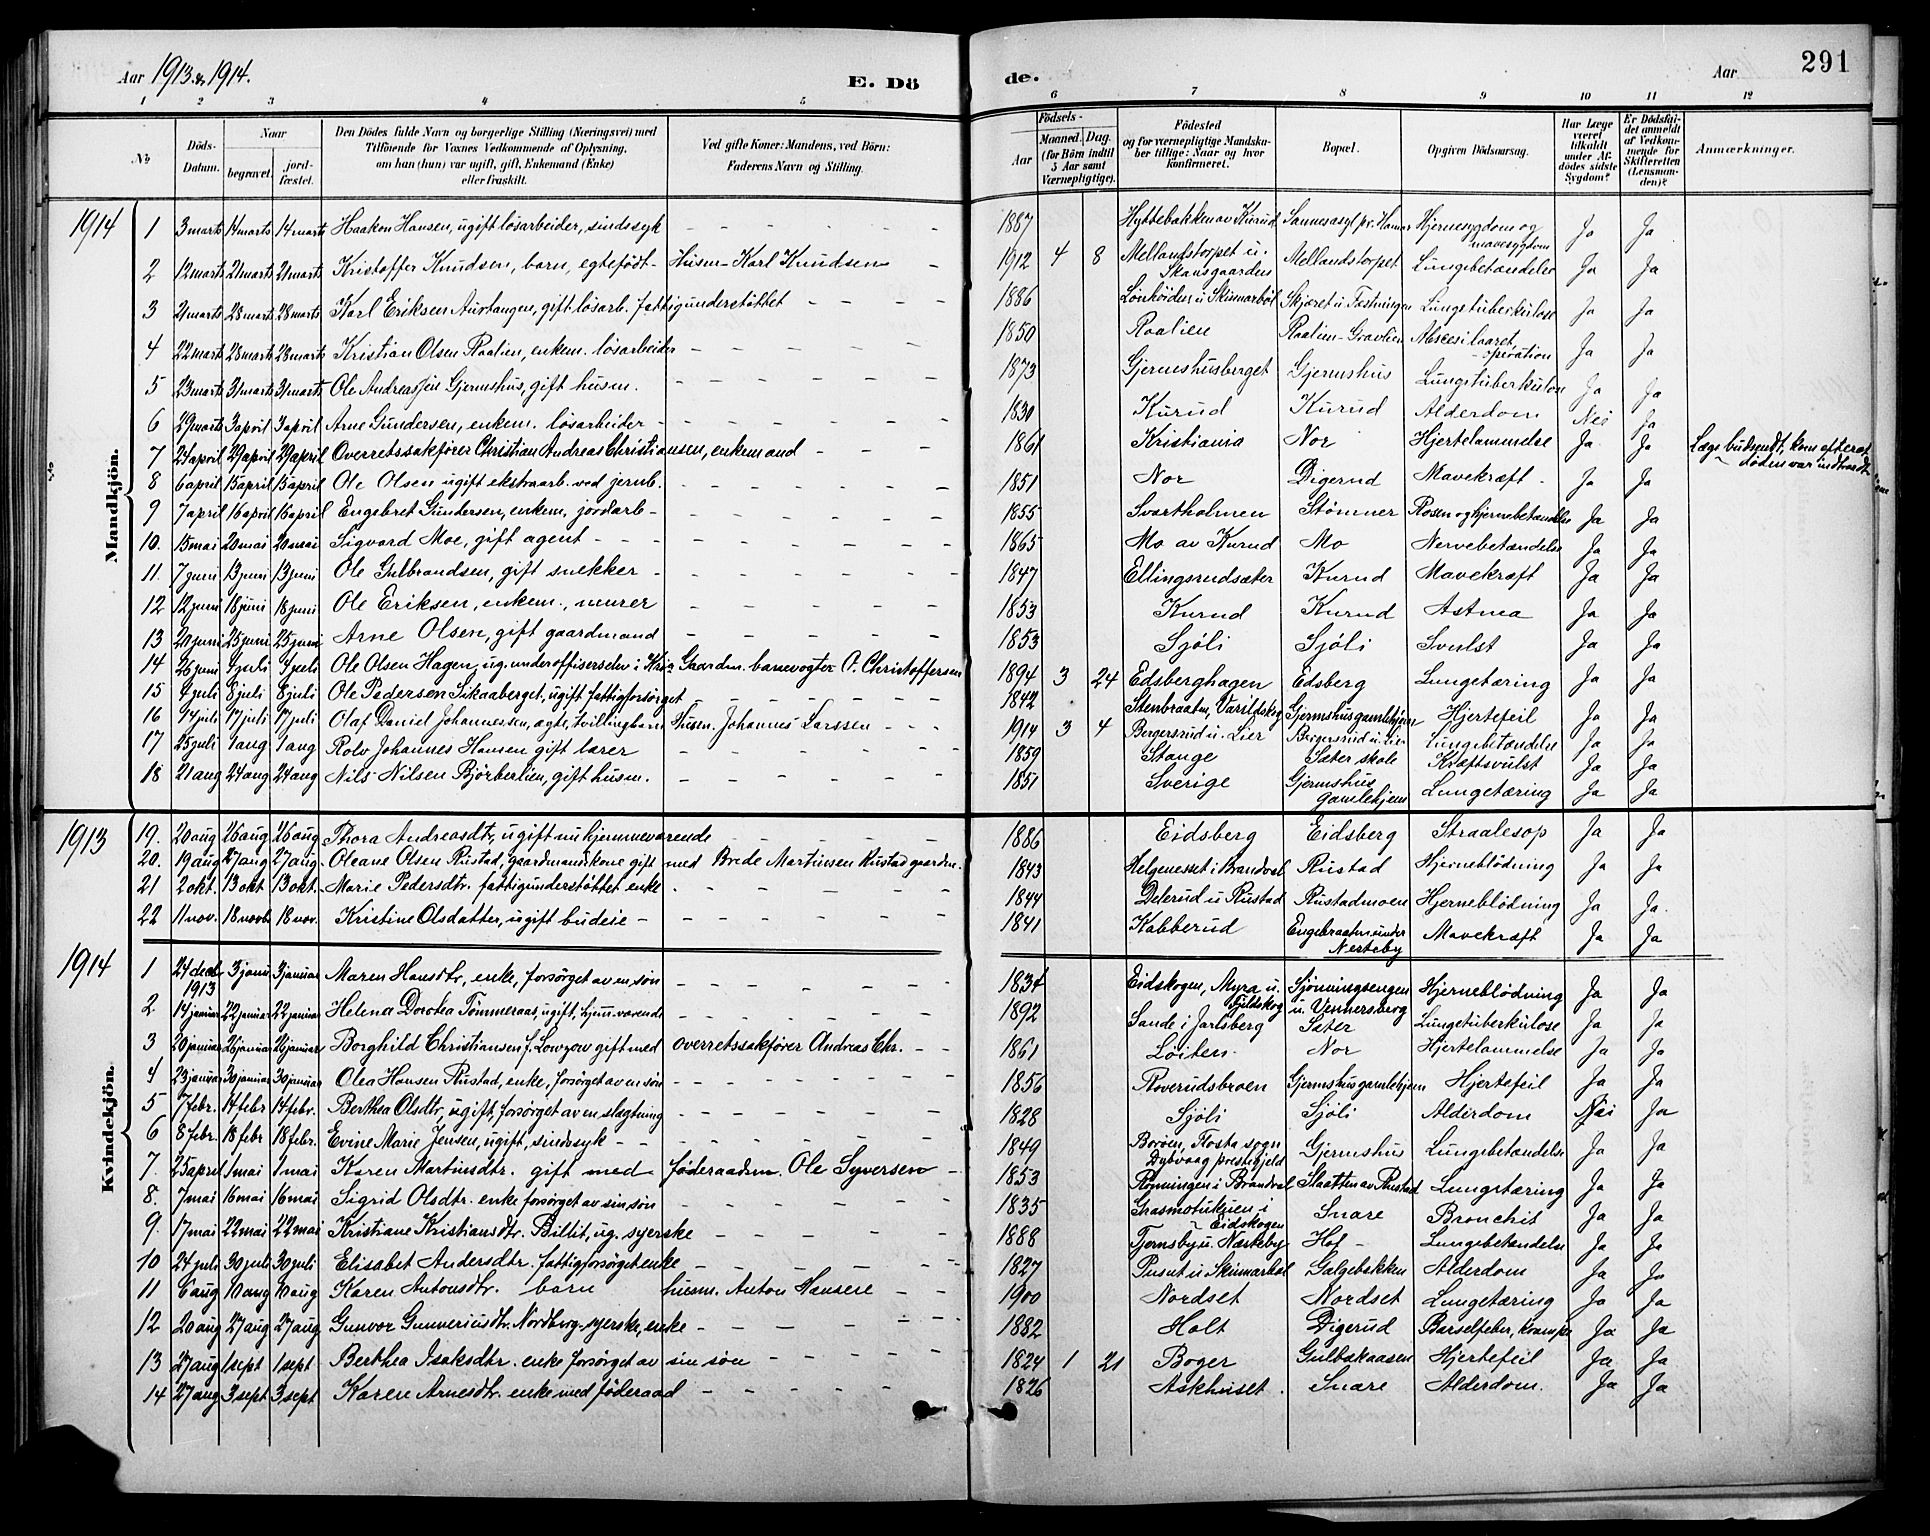 Aar 1913 & 1914.
E. Döde.
Aar
291
1 2 3 4 5 6 7 8 9 10 11 12
No
Döds-Datum.
Naar
begravet.
jordfæstet.
Den Dödes fulde Navn og borgerlige Stilling (Næringsvei) med Tilföiende for Voxnes Vedkommende af Oplysning, om han (hun) var ugift, gift, Enkemand (Enke) eller fraskilt.
Ved gifte Koner: Mandens, ved Börn: Faderens Navn og Stilling.
Födsels-
Aar
Maaned. Dag. (for Börn indtil 5 Aar samt Værnepligtige).
Födested og for værnepligtige Mandskaber tillige: Naar og hvor konfirmeret.
Bopæl.
Opgiven Dödsaarsag.
Har Læge været tilkaldt under Afdödes sidste Sygdom?
Er Dödsfaldet anmeldt af Vedkommende for Skifteretten (Lensmanden)?
Anmærkninger.
Mandkjön.
1914 1 3 marts 14 marts 14 marts Haakon Hansen, ugift løsarbeider, sindssyk 1887 Hyttebakken av Kurud Sannesasyl pr. Hamar Hjernesygdom og mavesygdom Ja Ja
2 12 marts 21 marts 21 marts Kristoffer Knudsen, barn, egtefødt - Husm. Karl Knudsen 1912 4 8 Mellandstorpet u. Skansgaarden Mellandstorpet Lungebetændelse Ja Ja
3 21 marts 28 marts 28 marts Karl Eriksen Aurtangen, gift løsarb. fattigunderstøttet 1886 Lønhøiden u. Skinnarbøl Skjæret u. Festningen Lungetuberkulose Ja Ja
4 22 marts 28 marts 28 marts Kristian Olsen Raalien, enkem. løsarbeider 1850 Raalien Raalien-Gravlien Absces i laaret, operation Ja Ja
5 23 marts 31 marts 31 marts Ole Andreassen Gjermshus, gift husm. 1873 Gjermshusberget Gjermshus Lungetuberkulose Ja Ja
6 29 marts 3 april 3 april Arne Gundersen, enkem. løsarbeider 1830 Kurud Kurud Alderdom Nei Ja
7 24 april 29 april 29 april Overretssakfører Christian Andreas Christiansen, enkemand 1861 Kristiania Nor Hjertelammelse Ja Ja Læge budsendt, kom efterat døden var indtraadt
8 6 april 15 april 15 april Ole Olsen ugift ekstraarb. ved jernb. 1851 Nor Digerud Mavekræft Ja Ja
9 7 april 16 april 16 april Engebret Gundersen, enkem. jordarb 1855 Svartholmen Stømner Rosen og hjernebetændelse Ja Ja
10. 15 mai 20 mai 20 mai Sigvard Moe, gift agent 1865 Mo av Kurud Mo Nervebetændelse Ja Ja
11. 7 juni 13 juni 13 juni Ole Gulbrandsen, gift snekker 1847 Ellingsrudsæter Kurud Mavekræft Ja Ja
12 12 juni 18 juni 18 juni Ole Eriksen, enkem., murer 1853 Kurud Kurud Astma Ja Ja
13 20 juni 25 juni 25 juni Arne Olsen, gift gaardmand 1853 Sjøli Sjøli Svulst Ja Ja
14 26 juni 4 juli 4 juli Ole Olsen Hagen, ug. underofficerselev i Kr.a Gaardm. banevogter O. Christoffersen 1894 3 24 Edsberghagen Edsberg Lungetæring Ja Ja
15 4 juli 8 juli 8 juli Ole Pedersen Sikaaberget, ugift fattigforsørget 1842 Stenbraaten, Varildskog Gjermshus gamlehjem Hjertefeil Ja Ja
16 14 juli 17 juli 17 juli Olaf Daniel Johannessen, egte, tvillingbarn Husm. Johannes Larssen 1914 3 4 Bergersrud u. Lier Bergersrud u. Lier Lungebetændelse Ja Ja
17 25 juli 1 aug 1 aug Rolv Johannes Hansen gift lærer 1859 Stange Sæter skole Kræftsvulst Ja Ja
18 21 aug 24 aug 24 aug Nils Nilsen Bjørberlien, gift husm. 1851 Sverige Gjermshus Gamlehjem Lungetæring Ja Ja
Kvindekjön.
1913 19. 20 aug 26 aug 26 aug Thora Andreasdtr, ugift nu hjemmeværende 1886 Eidsberg Eidsberg Straalesop Ja Ja
20. 19 aug 27 aug 27 aug. Oleane Olsen Rustad, gaardmandskone gift med Brede Martinsen Rustad gaardm. 1843 Helgenesset i Brandval Rustad Hjerneblödning Ja Ja
21 2 okt. 13 okt 13 okt. Marie Pedersdtr. fattigunderstøttet enke 1844 Delerud u. Rustad Rustadmoen Hjerneblödning Ja Ja
22 11 nov. 18 novb 18 nov. Kristine Olsdatter, ugift budeie 1841 Kabberud Engebraaten under Nerteby Mavekræft Ja Ja
1914 1 24 decb 1913 3 janu 3 januar Maren Hansdtr, enke, forsørget av en søn 1831 Eidskogen, Myra u. Fjeldskog Sjønningsengen u. Vennersberg Hjerneblödning Ja Ja
2. 14 januar 22 januar 22 januar Helena Dorotea Tømmeraas, ugift, hjem. værende 1892 Sande i Jarlsberg Sæter Lungetuberkulose Ja Ja
3 20 januar 26 januar 26 januar Borghild Christiansen f. Lowzow gift med overretssakfører Andreas Chr. 1861 Løiten Nor Hjertelammelse Ja Ja
4 23 januar 30 januar 30 januar Olea Hansen Rustad, enke, forsørget av en søn 1856 Roverudsbroen Gjermshus gamlehjem Hjertefeil Ja Ja
5 7 febr. 14 febr 14 febr. Berthea Olsdtr, ugift, forsørget av en slægtning 1828 Sjøli Sjøli Alderdom Nei Ja
6 8 febr. 18 febr 18 febr. Evine Marie Jensen, ugift, sindssyk 1849 Borøen, Flosta sogn Dybvaag prestegjeld Gjermshus Lungebetændelse Ja Ja
7. 25 april 1 mai 1 mai Karen Martinsdtr. gift med føderaadm. Ole Syversen 1853 Rønningen i Brandval Slaatten av Rustad Lungetæring Ja Ja
8. 7 mai 16 mai 16 mai Sigrid Olsdtr. enke forsørget av sin søn 1835 Græsmotukuien i Eidskogen Snare Bronchit Ja Ja
9. 17 mai 22 mai 22 mai Kristiane Kristiansdtr. Billit, ug. syerske 1888 Tjernsby u. Nærteby Hof Lungebetændelse Ja Ja
10 24 juli 30 juli 30 juli Elisabet Andersdtr. fattigforsørget enke 1827 Puset u. Skinnarbøl Galgebakken Alderdom Ja Ja
11 6 aug 10 aug 10 aug Karen Antonsdtr. barn husm. Anton Hansen 1900 Nordset Nordset Lungetæring Ja Ja
12 20 aug 27 aug 27 aug Gunvor Gunveriusdtr. Nordberg syerske, enke 1882 Holt Digerud Barselfeber, krampe Ja Ja
13 27 aug 1 sept 1 sept Berthea Isaksdtr. enke forsørget av sin søn 1824 1 21 Boger Gulbskaasen Hjertefeil Ja Ja
14 27 aug 3 sept 3 sept Karen Arnesdtr. enke med føderaad 1826 Askhuset Snare Alderdom. Ja Ja